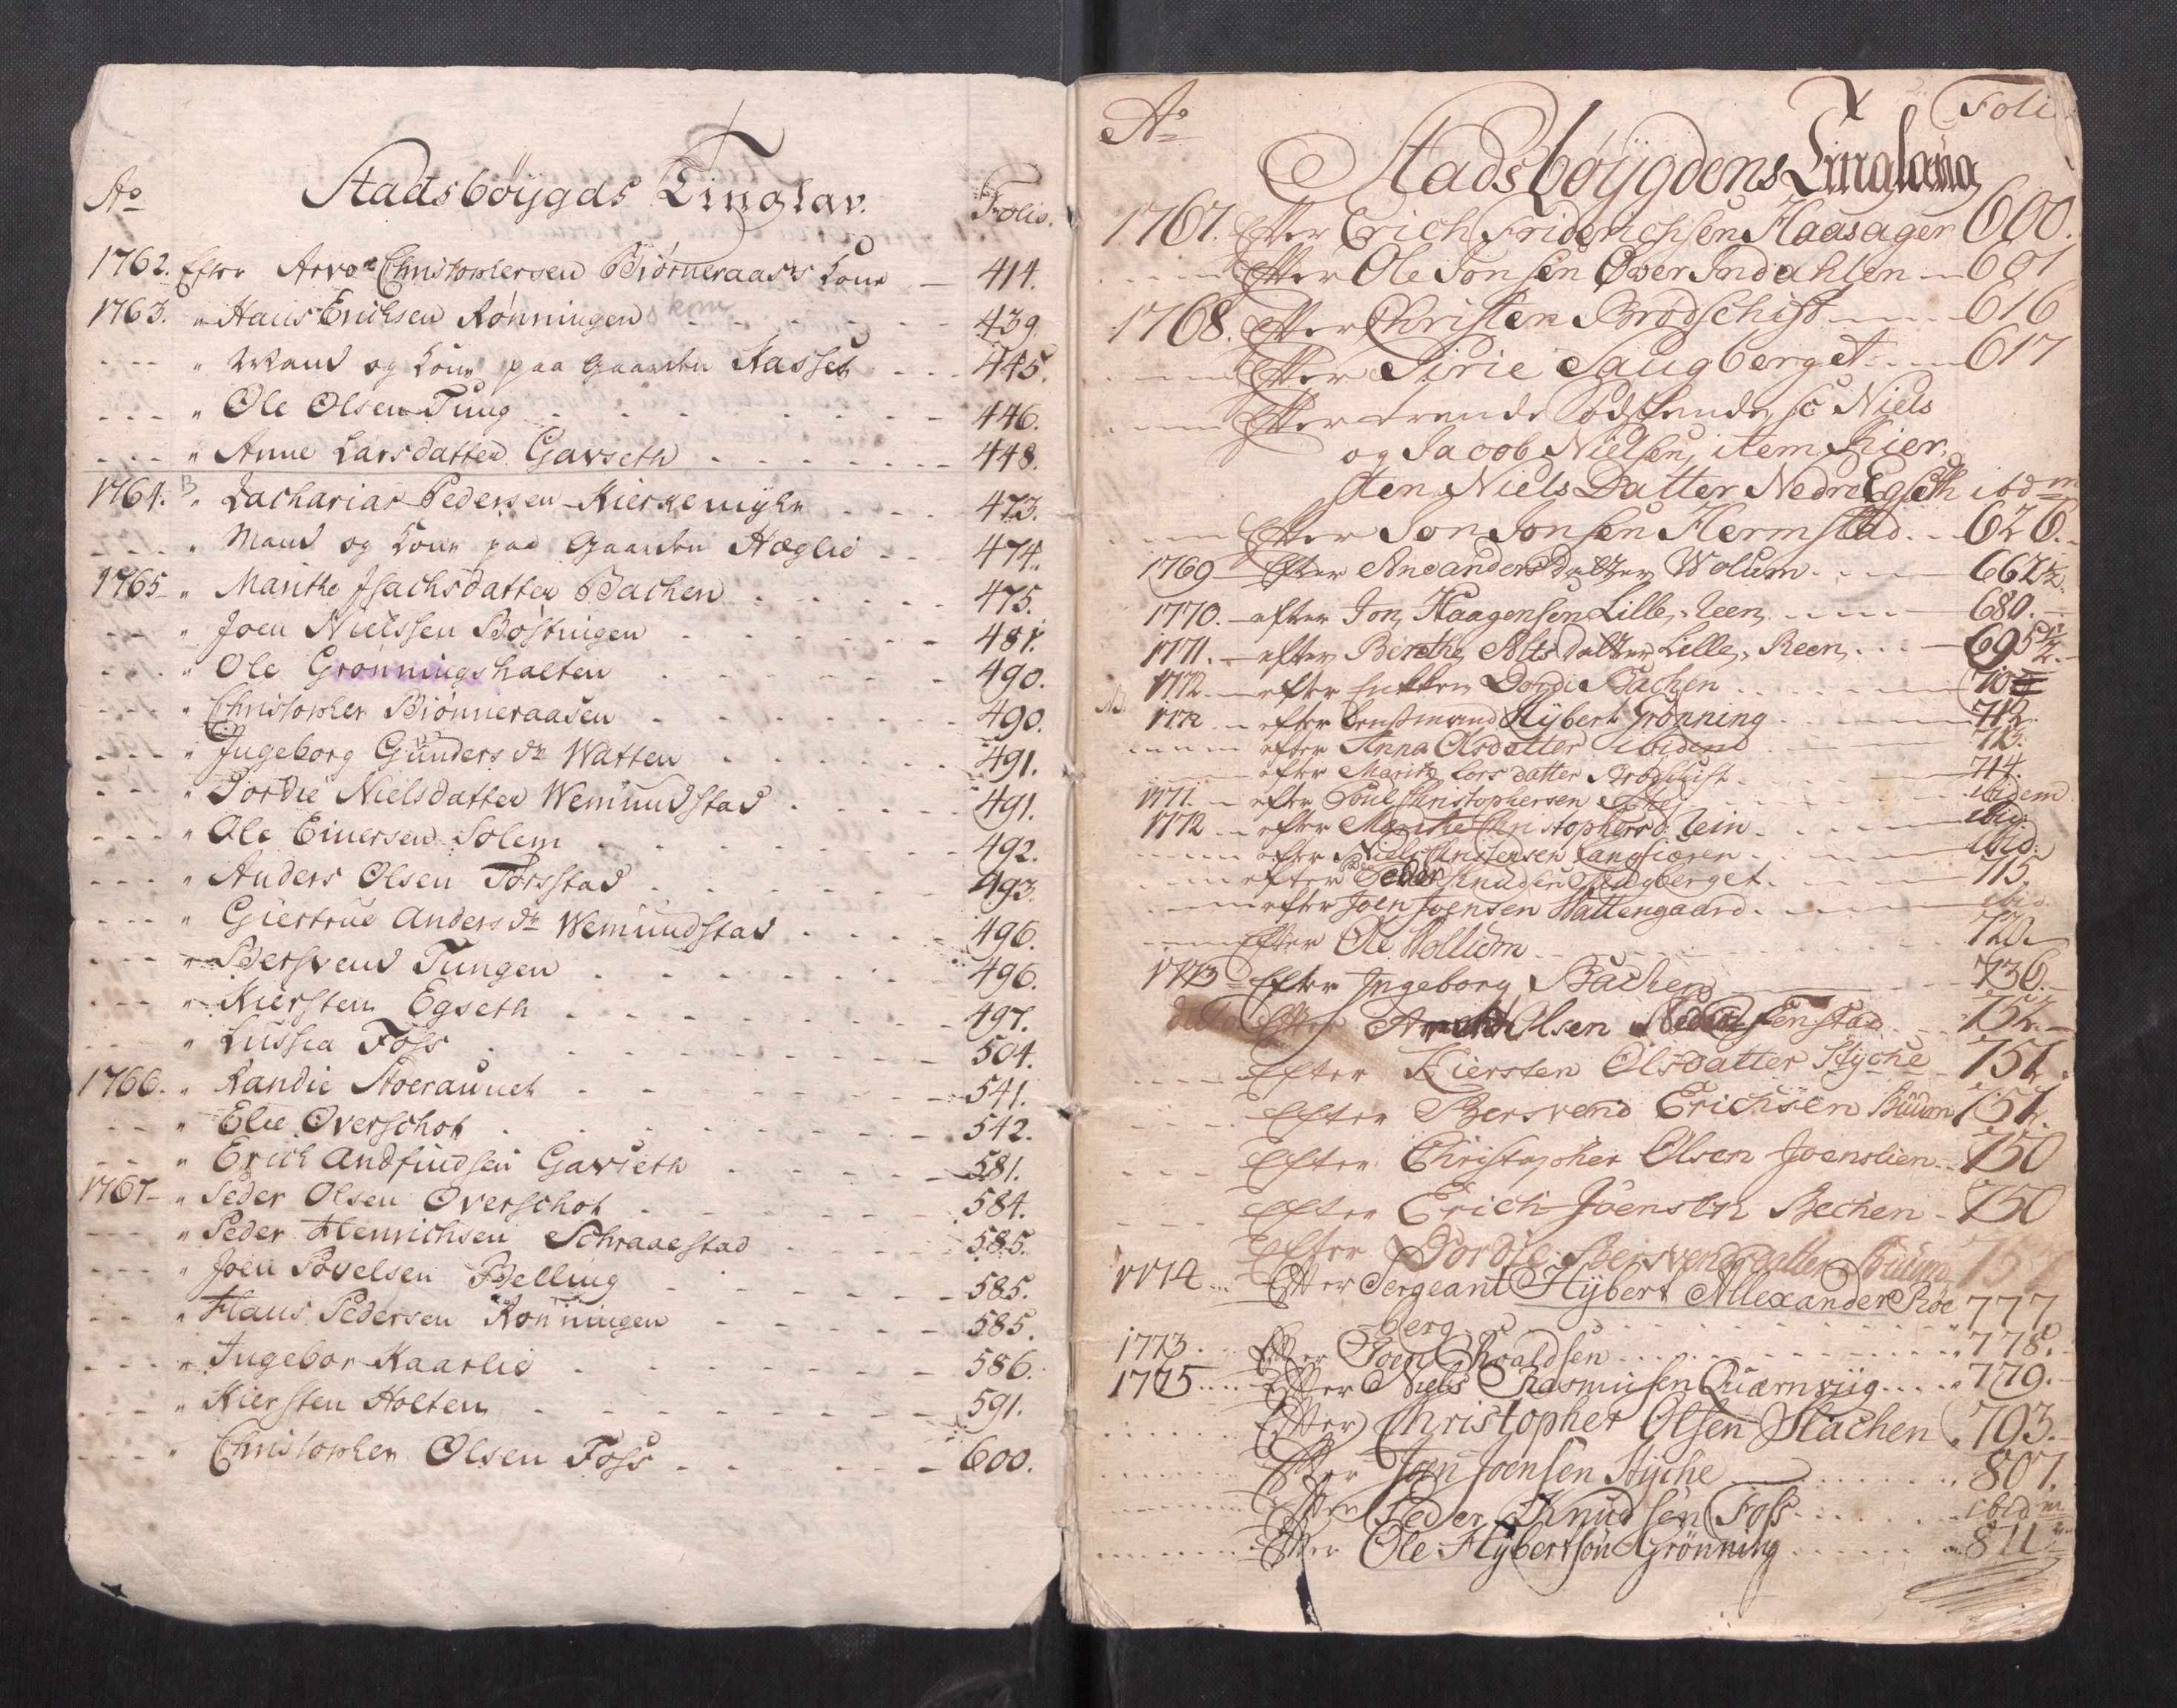 Stadsböijgds Tinglav.
Ao Folio.
1762. Efter Arve Christophersen Biørneraas's Kone — 414.
1763. " Hans Erichsen Rønningen - - - 439
- - - " Mand og Kone paa Gaarden Rasset - - - 445.
- - - " Ole Olsen Tung - - - 446.
- - - " Anne Larsdatter Garseth - - - 448.
1764. " Zacharias Pedersen Kierkemyhr - - - 473.
- - - " Mand og Kone paa Gaarden Høglie - - - 474.
1765 " Marithe Jsachsdatter Bachen - - - 475.
- - - " Joen Nielssen Bøstingen - - - 481.
- - - " Ole Grønningshalten - - - 490.
- - - " Christopher Biönneraasen - - - 490.
- - - " Jngeborg Gunders dr Watten - - - 491.
- - - " Dordie Nielsdatter Wemundstad - - - 491.
- - - " Ole Einersen Solem - - - 492.
- - - " Anders Olsen Forsstad - - - 493.
- - - " Giertrue Anders dr Wemundstad - - - 496.
- - - " Bersvend Tungen - - - 496.
- - - " Kiersten Egseth - - - 497.
- - - " Lussia Foss - - - 504.
1766. " Randie Stoeraunet - - - 541.
- - - " Elie Overschot - - - 542.
- - - " Erich Andfindsen Garseth - - - 581.
1767 - " Peder Olsen Overschot - - - 584.
- - - " Peder Henrichsen Schraaestad - - - 585.
- - - " Joen Povelsen Belling - - - 585.
- - - " Hans Pedersen Rønningen - - - 585.
- - - " Jngebor Kaarlie - - - 586.
- - - " Kiersten Holten - - - 591.
- - - " Christopher Olsen Foss - - - 600.
Ao Foli
Stadsböijgdens Tinglaug
1767. Efter Erich Friderichsen Haasager 600.
- - - Efter Ole Jonsen Over Indahlen - 601
1768. Efter Christen Brødschift - - - 616
- - - Efter Sirie Saugberget - - - 617
- - - Efter trende Sødskende, sc Niels
og Jacob Nielsen, item Kier,
sten Niels Datter Nedre Egseth ibdm
- - - Efter Jon Jonsen Hermstad - - 626.
1769 - Efter Ane anders Datter Wolum - - - 662½.
1770. - efter Jon Haagensen Lille, Reen - - - 680.
1771. - efter Berethe Olsdatter Lille, Reen - - - 695½.
1772 - efter Enken Dordi Bachen - - -
1772 - efter Lensmand Hÿbert Grønning - - - 712.
- - - efter Anna Olsdatter ibidem - - - 713.
- - - efter Marith Lars datter Brødschift - - - 714.
1771. - efter Poul Christophersen - - - ibidem
1772 - efter Marithe Christophers d: Rein - - - ibid:
- - - efter Niels Christensen Langsiøren - - - ibid:
- - - efter Peder Knudsen Saugberget - - - 715
- - - efter Joen Joensen Wattengaard - - - ibid.
- - - Efter Ole Wollum - - - 720.
1773 Efter Jngeborg Bachen - - - 736.
- - - Olsen
- - - Efter Kiersten Olsdatter Hÿche - 751.
- - - Efter Bersvend Erichsen Buum 751.
- - - Efter Christopher Olsen Joenslien - - 750
- - - Efter Erich Joensen Bechen - 750
Efter Dordie Bersvendsdatter Buum
1774 - - Efter Sergeant Hÿbert Allexander Røe
berg - - - 777,
1773. Efter Joen Roaldsen - - - 778.
1775 - - Efter Niels Rasmusen Quærnvÿig - - - 779.
- - - Efter Christopher Olsen Hachen 793.
- - - Efter Joen Joensen Hÿche - - - 807.
- - - Efter Peder Knudsen Foss - - - ibidm
- - - Efter Ole Hÿbertsøn Grönning - - - 811